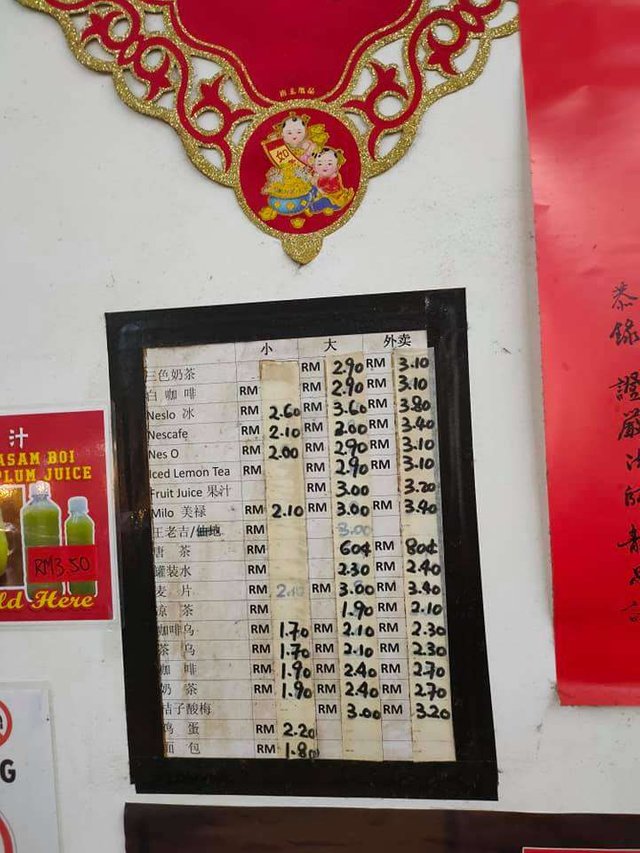 如
小 大 外卖
三色奶茶 RM 2.90 RM 3.10
白咖啡 RM RM 2.90 RM 3.10
Neslo 冰 RM 2.60 RM 3.60 RM 3.80
Nescafe RM 2.10 RM RM 3.40
Nes O RM 2.00 RM 2.90 RM 3.10
Iced Lemon Tea RM RM 2.90 RM 3.10
Fruit Juice 果汁 RM 3.00 RM 3.20
Milo 美禄 RM 2.10 RM 3.00 RM 3.40
王老吉/ RM 3.00
唐 茶 RM 60¢ RM 80¢
罐装水 RM 2.30 RM 2.40
麦 片 RM RM 3.00 RM 3.40
凉 茶 RM 1.90 RM 2.10
咖啡乌 RM 1.70 RM 2.10 RM 2.30
茶 乌 RM 1.70 RM 2.10 RM 2.30
咖 啡 RM 1.90 RM 2.40 RM 2.70
奶 茶 RM 1.90 RM 2.40 RM 2.70
桔子酸梅 RM 3.00 RM 3.20
鸡 蛋 RM 2.20
面 包 RM 1.80
汁
ASAM BOI
PLUM JUICE
RM3.50
ld Here
G
恭錄 證嚴法師